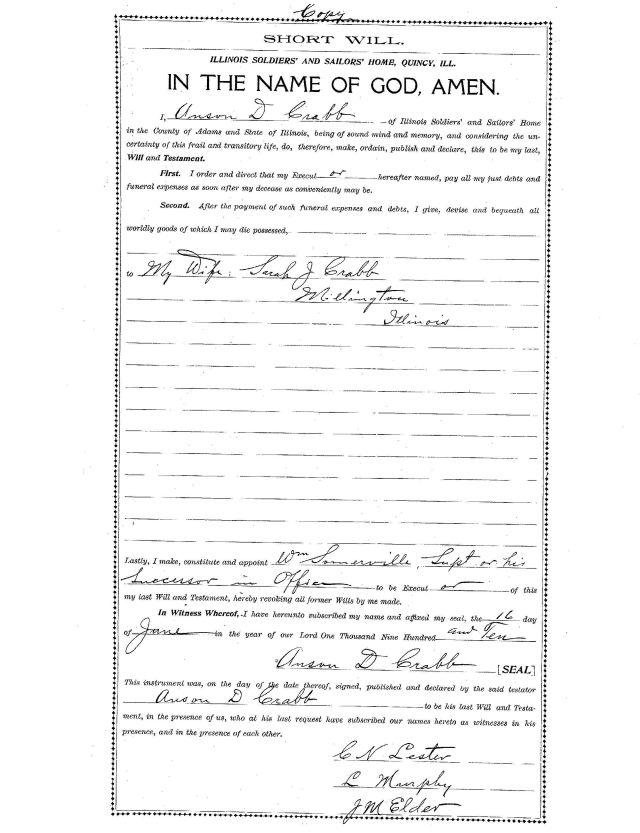 Copy
SHORT WILL.
ILLINOIS SOLDIERS' AND SAILORS' HOME, QUINCY, ILL.
IN THE NAME OF GOD, AMEN.
I, Anson D Crabb of Illinois Soldiers' and Sailors' Home
in the County of Adams and State of Illinois, being of sound mind and memory, and considering the un-
certainty of this frail and transitory life, do, therefore, make, ordain, publish and declare, this to be my last,
Will and Testament.
First. I order and direct that my Execut or hereafter named, pay all my just debts and
funeral expenses as soon after my decease as conveniently may be.
Second. After the payment of such funeral expenses and debts, I give, devise and bequeath all
worldly goods of which I may die possessed,
to My Wife: Sarah J Crabb
Millington
Illinois
Lastly, I make, constitute and appoint Wm Somerville, Supt or his
Successor in Office to be Execut or of this
my last Will and Testament, hereby revoking all former Wills by me made.
In Witness Whereof, I have hereunto subscribed my name and affixed my seal, the 16 day
of June in the year of our Lord One Thousand Nine Hundred and Ten
Anson D Crabb [SEAL]
This instrument was, on the day of the date thereof, signed, published and declared by the said testator
Anson D Crabb to be his last Will and Testa-
ment, in the presence of us, who at his last request have subscribed our names hereto as witnesses in his
presence, and in the presence of each other.
C N Lester
L Murphy
J M Elder